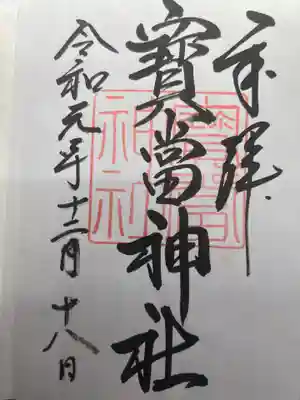 奉拝
寳當神社
寳當神社
令和元年十二月十八日